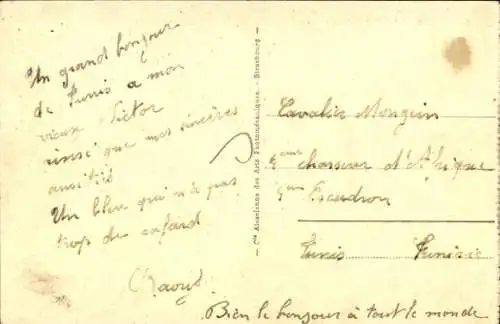 Un grand bonjour
de Tunis a mon
vieux Victor
ainsi que mes sincères
amitiés
Un bleu qui n'a pas
trop de cafard
Raoul
Cie Alsacienne des Arts Photomécaniques - Strasbourg
Cavalier Mongin
4eme chasseur d'Afrique
Escadron
Tunis Tunisie
Bien le bonjour à tout le monde